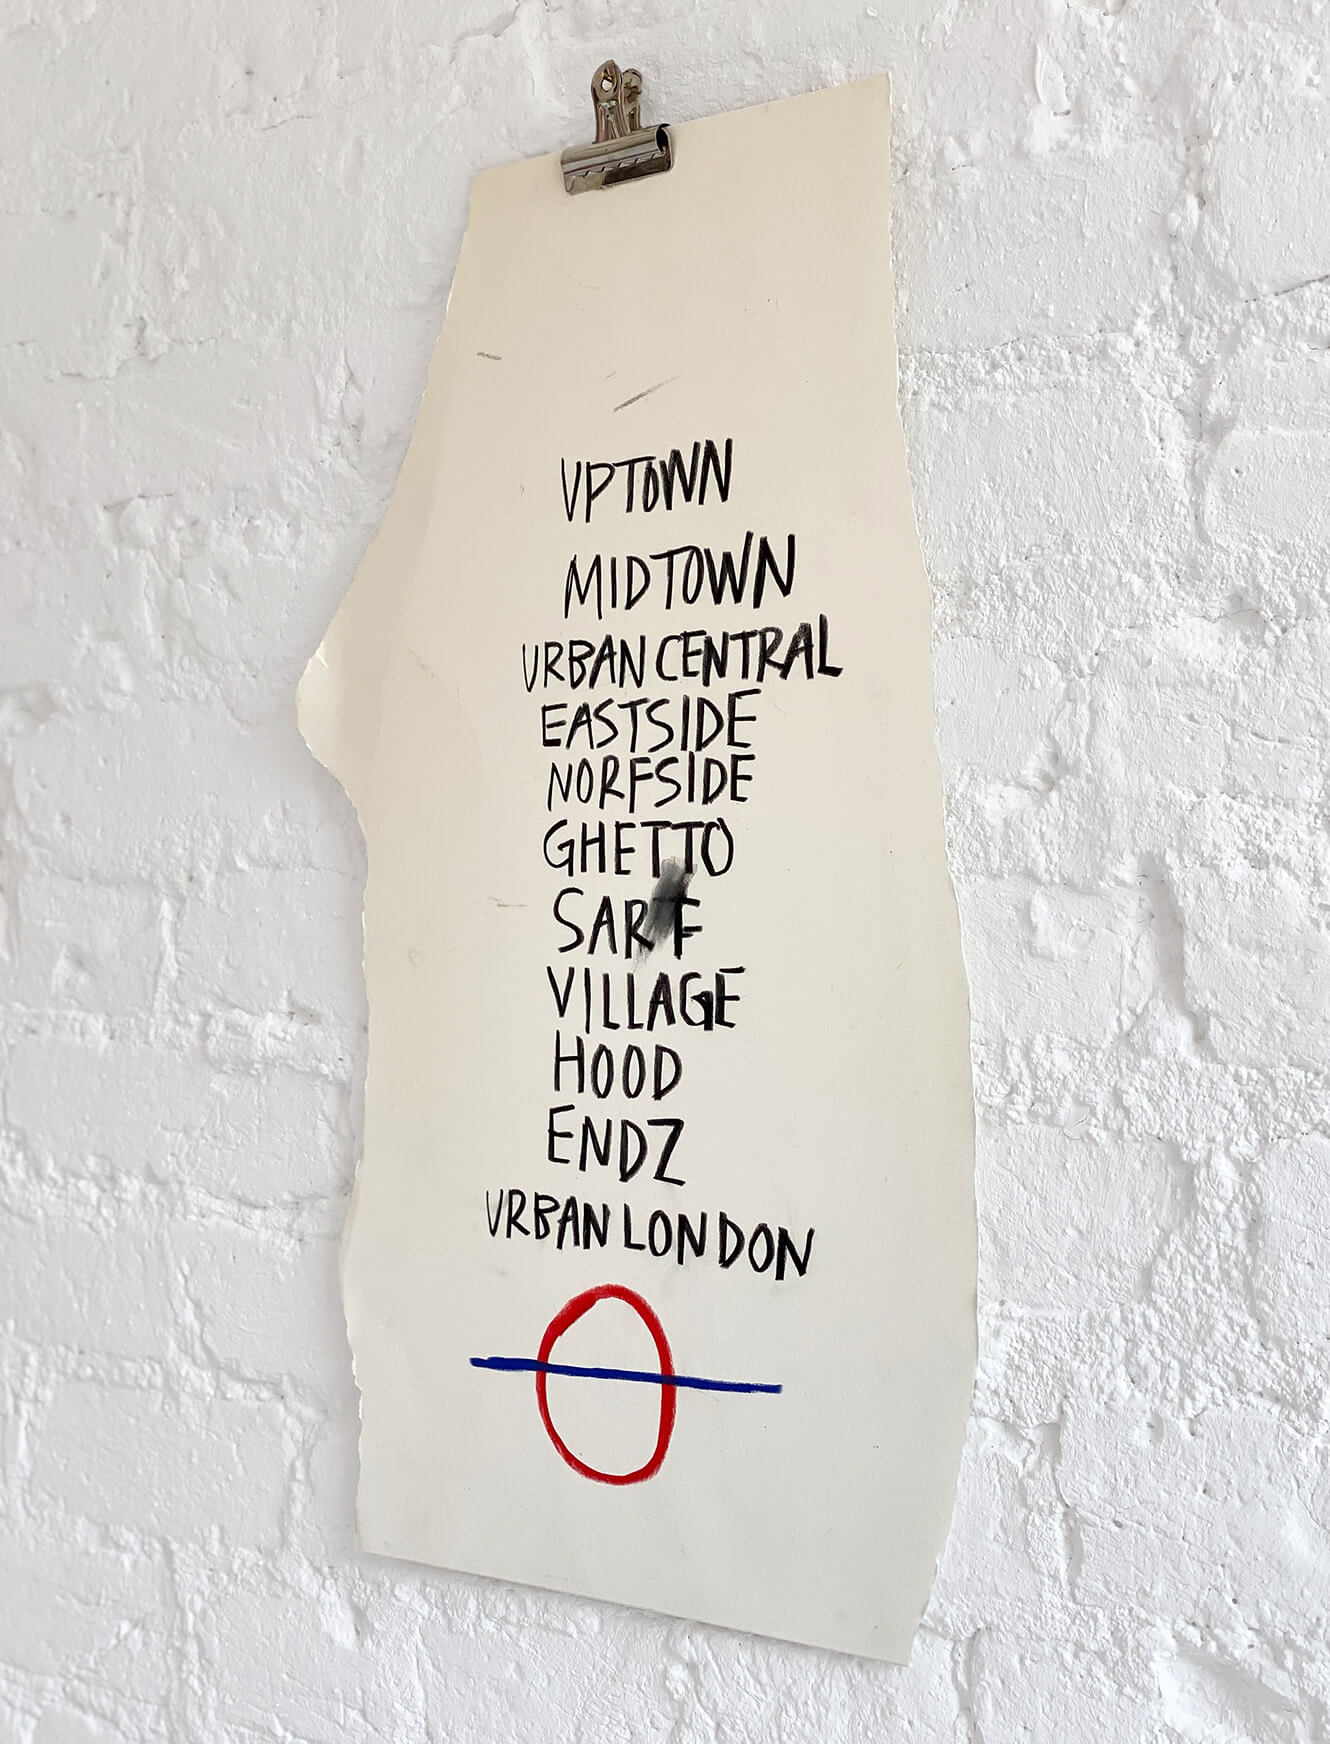 UPTOWN
MIDTOWN
URBAN CENTRAL
EASTSIDE
NORFSIDE
GHETTO
SARF
VILLAGE
HOOD
ENDZ
URBAN LONDON